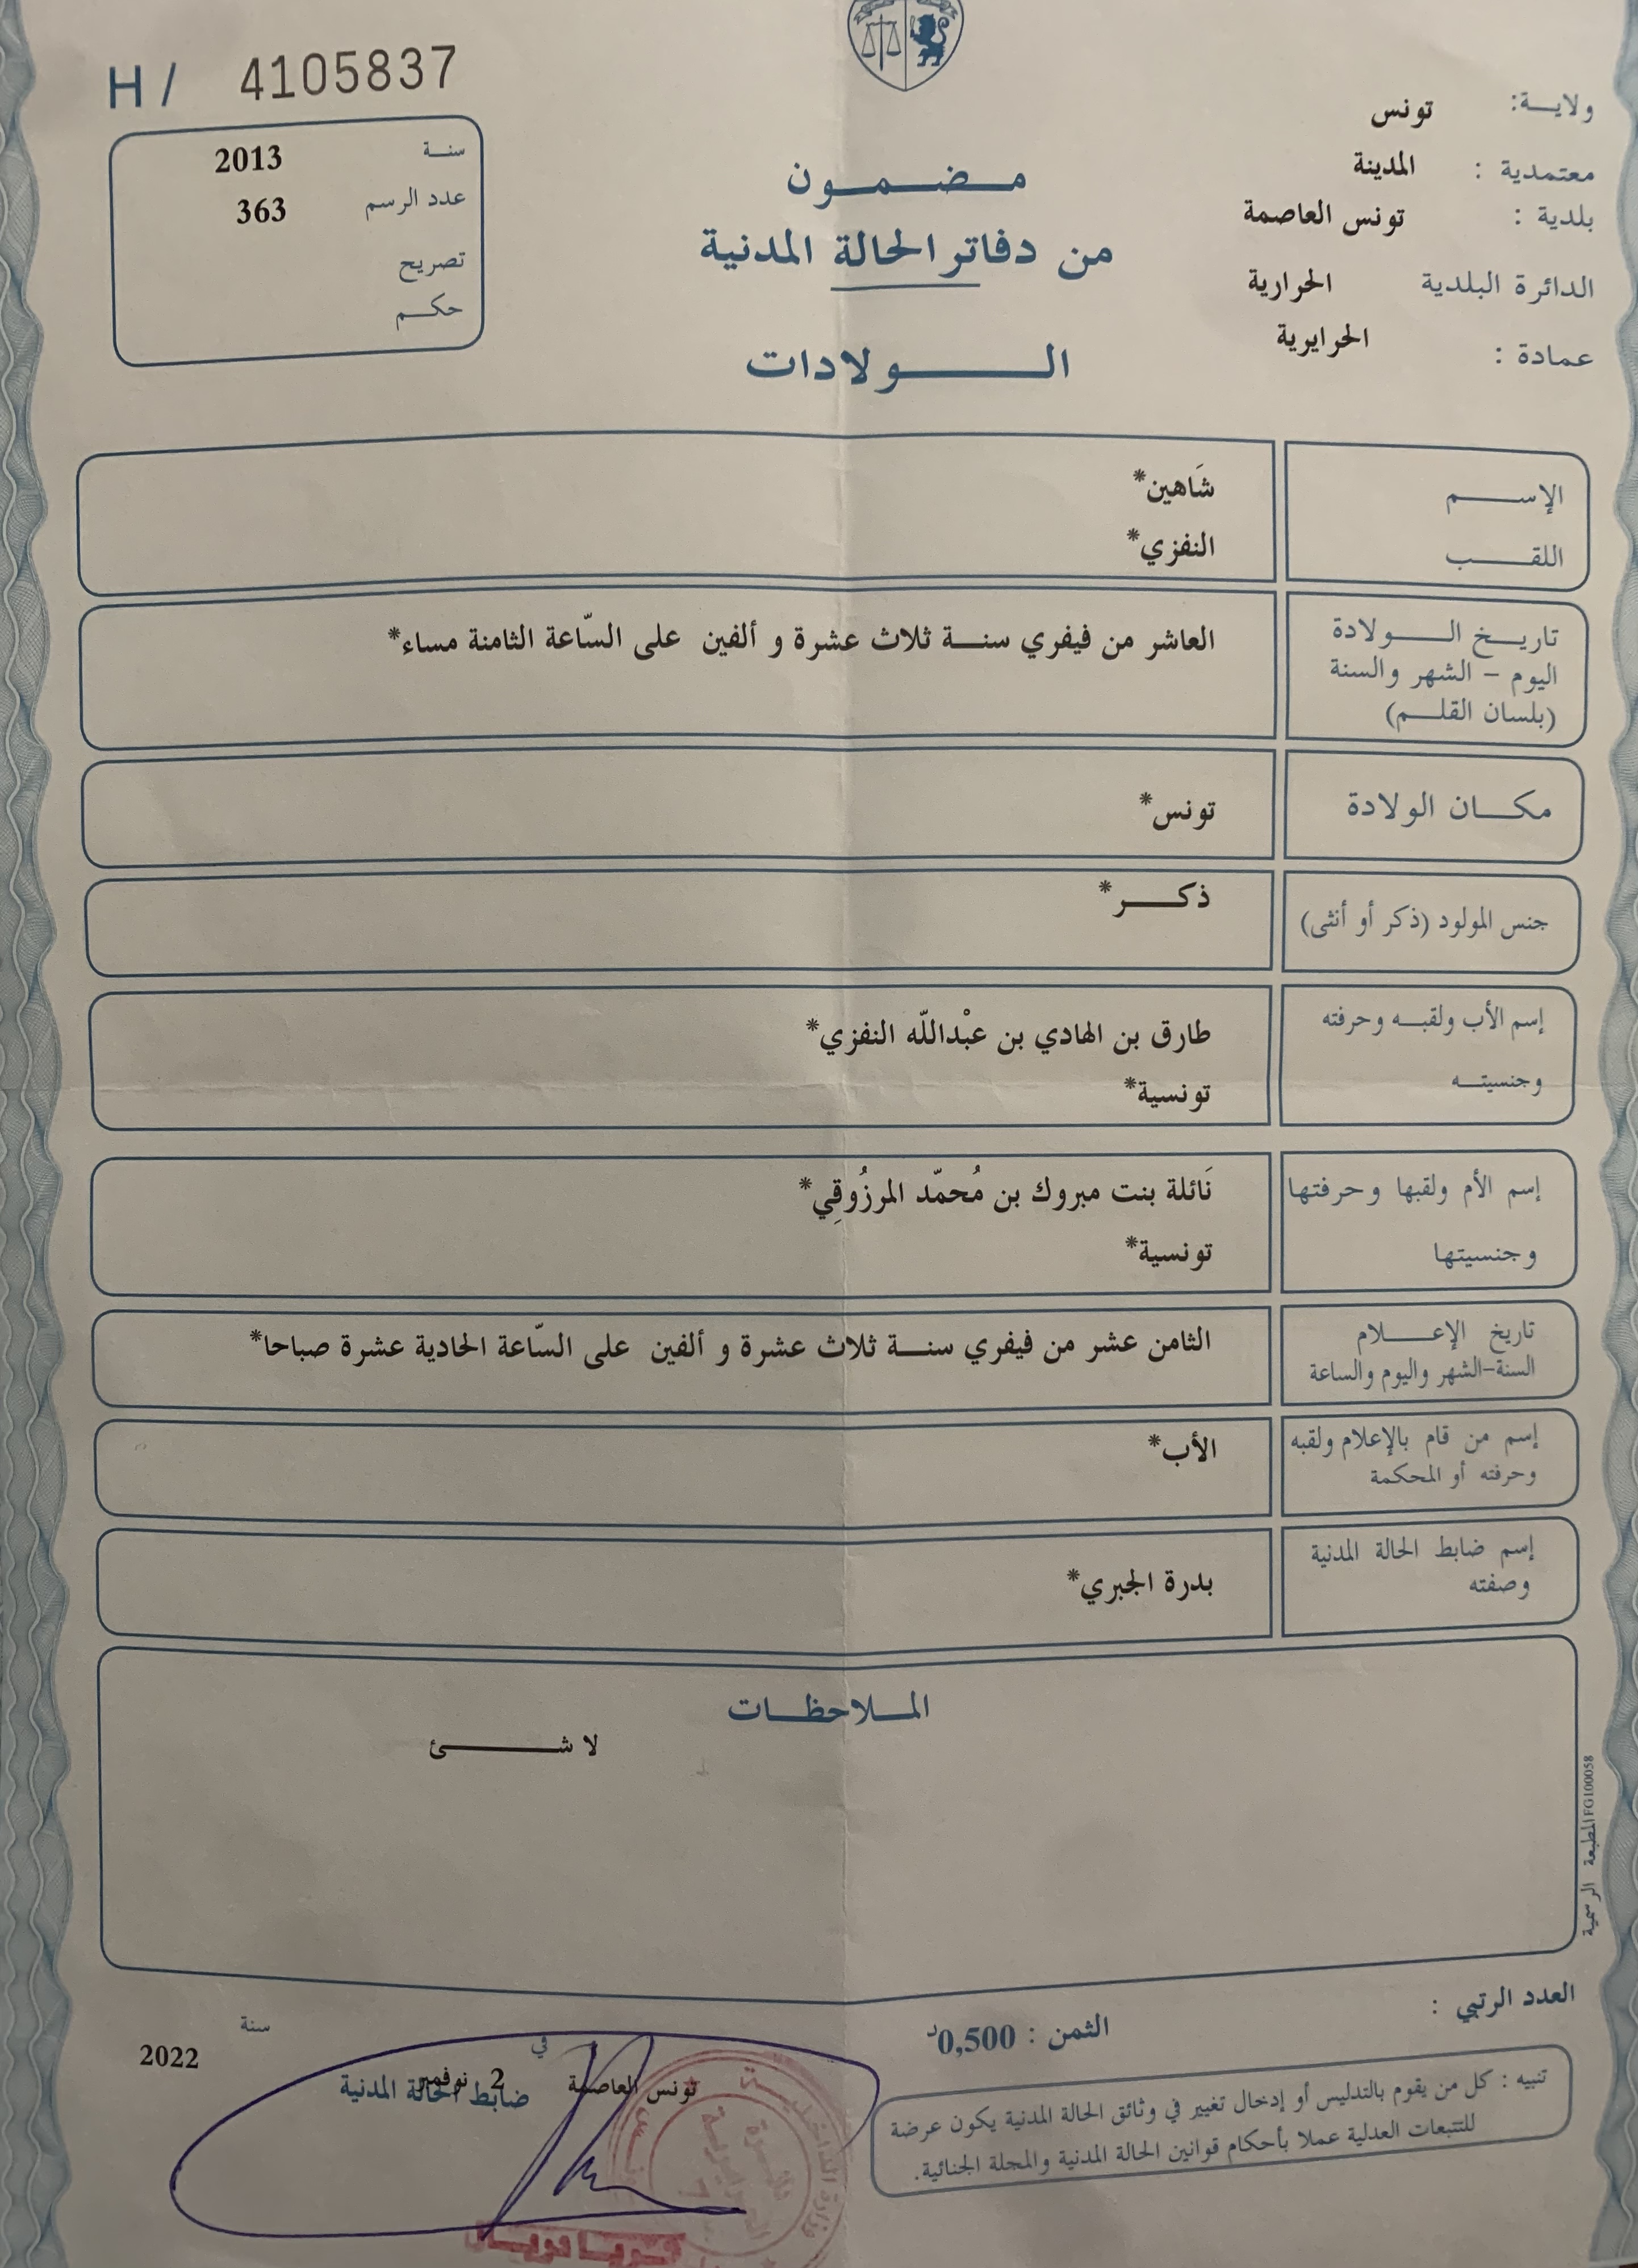 H / 4105837
ولايـــة: تونس
معتمدية : المدينة
بلدية : تونس العاصمة
الدائرة البلدية الحرارية
عمادة : الحرايرية
سنــة 2013
عدد الرسم 363
تصريح
حكــم
مــضــمــون
من دفاتر الحالة المدنية
الــــولادات
الإســــم شَاهين*
اللقـــب النفزي*
تاريــخ الــــولادة العاشر من فيفري سنــة ثلاث عشرة و ألفين على السّاعة الثامنة مساء*
اليوم – الشهر والسنة
(بلسان القلــم)
مكــان الولادة تونس*
جنس المولود (ذكر أو أنثى) ذكـــر*
إسم الأب ولقبــه وحرفته طارق بن الهادي بن عبْداللّه النفزي*
وجنسيتــه تونسية*
إسم الأم ولقبها وحرفتها نَائلة بنت مبروك بن مُحمّد المرزُوقِي*
وجنسيتها تونسية*
تاريخ الإعــــلام الثامن عشر من فيفري سنــة ثلاث عشرة و ألفين على السّاعة الحادية عشرة صباحا*
السنة-الشهر واليوم والساعة
إسم من قام بالإعلام ولقبه الأب*
وحرفته أو المحكمة
إسم ضابط الحالة المدنية بدرة الجبري*
وصفته
المــلاحظــات
لا شــــئ
المطبعة الرسمية FG100058
العدد الرتبي :
الثمن : 0,500د
تنبيه : كل من يقوم بالتدليس أو إدخال تغيير في وثائق الحالة المدنية يكون عرضة
للتتبعات العدلية عملا بأحكام قوانين الحالة المدنية والمجلة الجنائية.
تونس العاصمة في 2 نوفمبر سنة 2022
ضابط الحالة المدنية
وزارة الداخلية